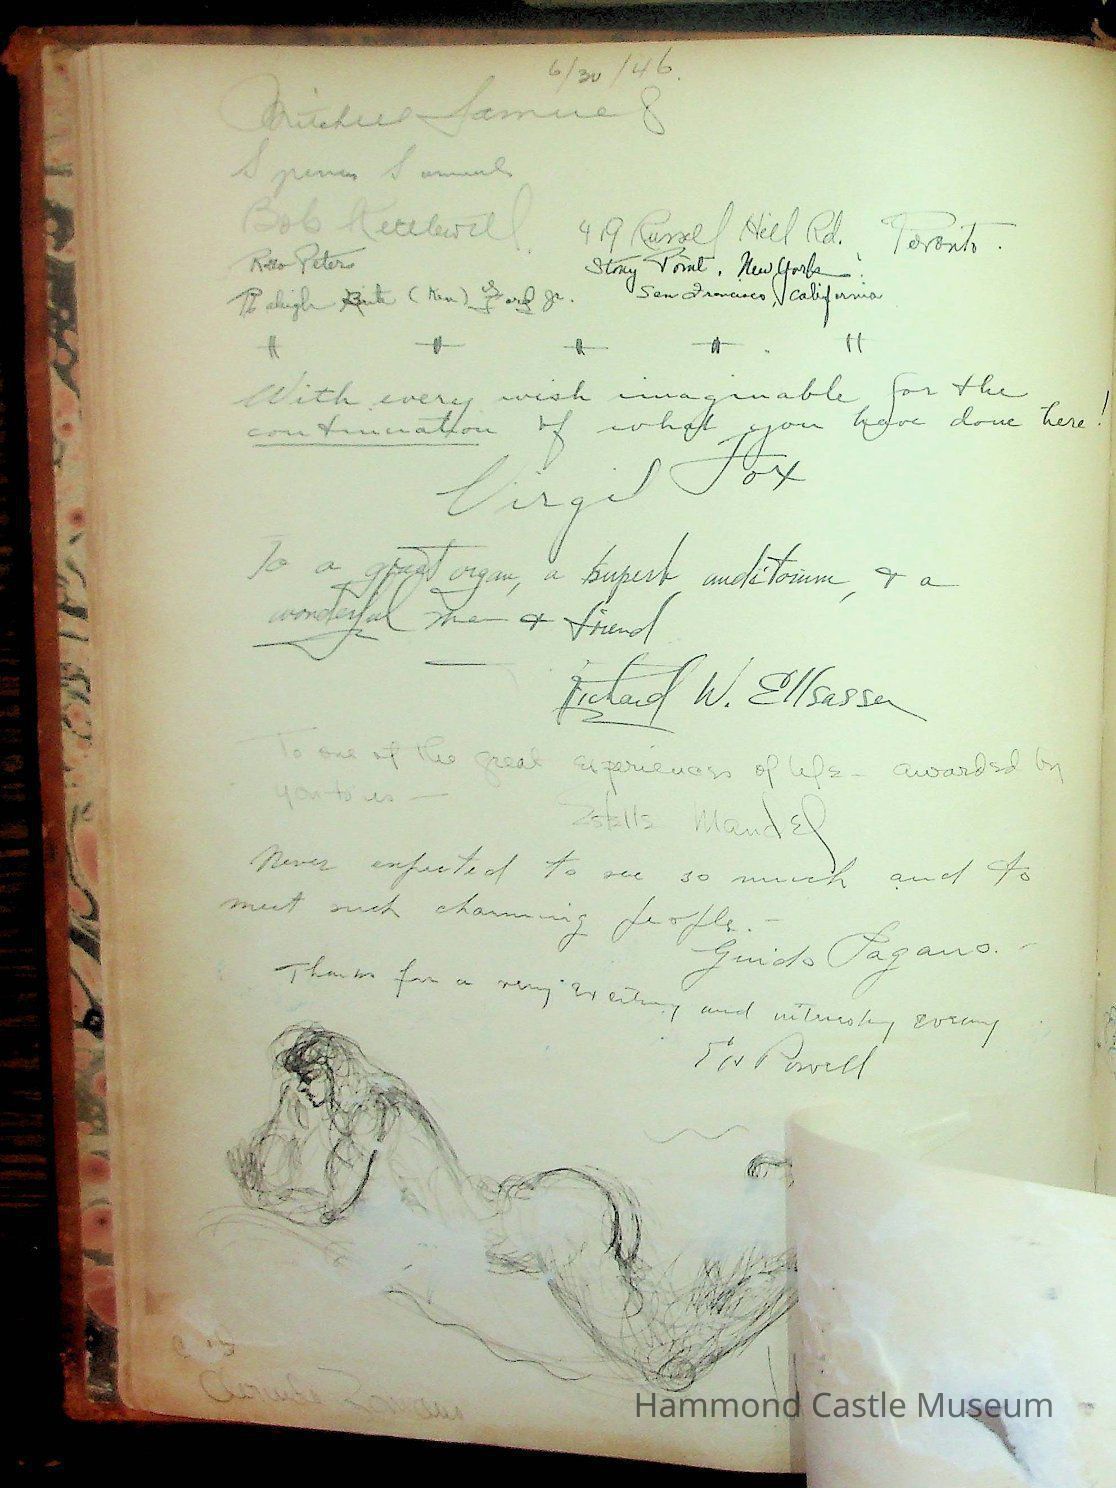 6/30/46.
Mitchell Samuels
Samuels
Bob Kettlewell. 419 Russel Hill Rd. Toronto.
Rollo Peters Stony Point, New York
(Ken) Ford Jr. San Francisco, California
" " " " "
With every wish imaginable for the
continuation of what you have done here!
Virgil Fox
To a great organ, a superb auditorium, & a
wonderful man & friend
Richard W. Ellsasser
To one of the great experiences of life - awarded by
you to us -
Estelle Mandel
Never expected to see so much and to
meet such charming people. -
Guido Pagano. -
Thanks for a very exciting and interesting evening
Powell
Hammond Castle Museum